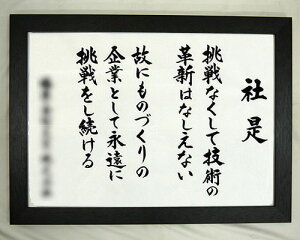 社是
挑戦なくして技術の
革新はなしえない
故にものづくりの
企業として永遠に
挑戦をし続ける